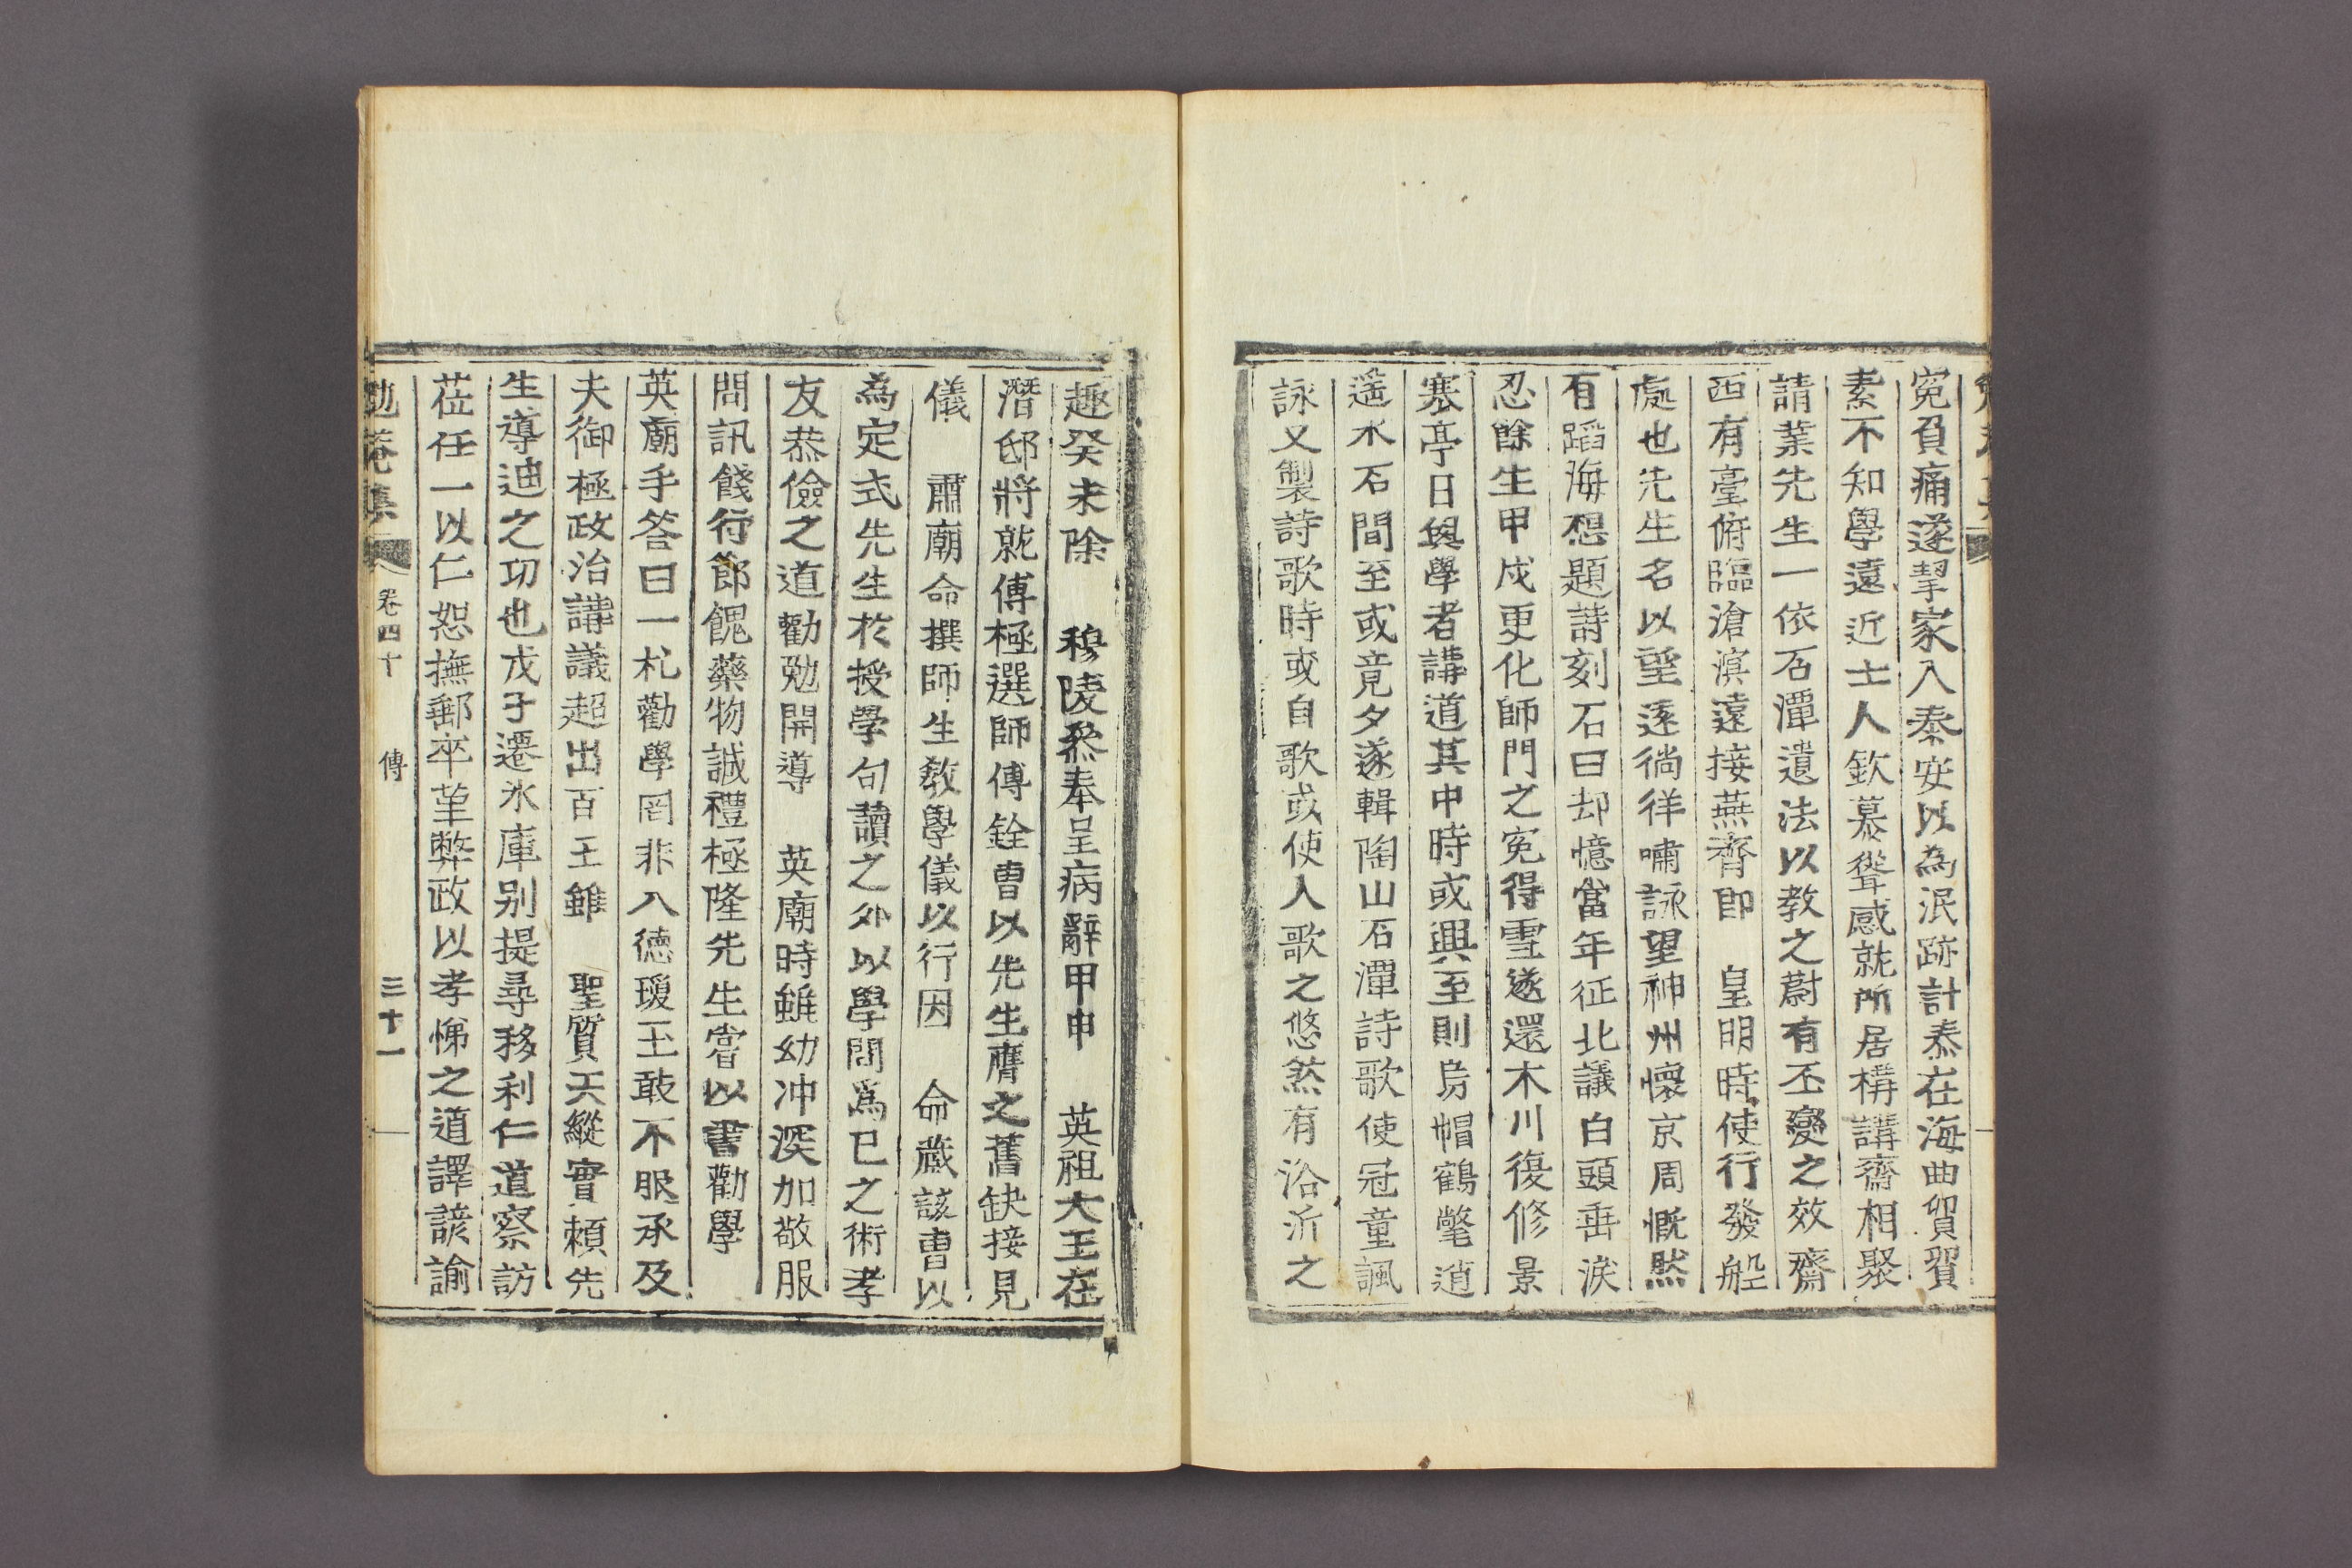 冤負痛遂挈家入泰安以為泯跡計泰在海曲貿貿
素不知學遠近士人欽慕聳感就所居構講齋相聚
請業先生一依石潭遺法以教之蔚有丕變之效齋
西有臺俯臨滄溟遠接燕齊卽 皇明時使行發船
處也先生名以望逐徜徉嘯詠望神州懷京周慨然
有蹈海想題詩刻石曰却憶當年征北議白頭垂淚
忍餘生甲戌更化師門之冤得雪遂還木川復修景
寒亭日與學者講道其中時或興至則烏帽鶴氅逍
遙水石間至或竟夕遂輯陶山石潭詩歌使冠童諷
詠又製詩歌時或自歌或使人歌之悠然有浴沂之
趣癸未除 穆陵叅奉呈病辭甲申 英祖大王在
潛邸將就傅極選師傅銓曹以先生膺之舊缺接見
儀 肅廟命撰師生敎學儀以行因 命藏該曹以
為定式先生於授學句讀之外以學問爲己之術孝
友恭儉之道勸勉開導 英廟時雖幼冲深加敬服
問訊餞行節餽藥物誠禮極隆先生嘗以書勸學
英廟手答曰一札勸學罔非入德瓊玉敢不服承及
夫御極政治講議超出百王雖 聖質天縱實賴先
生導迪之功也戊子遷氷庫別提尋移利仁道察訪
莅任一以仁恕撫郵卒革弊政以孝悌之道譯諺諭
勉菴集 卷四十 傳 三十一